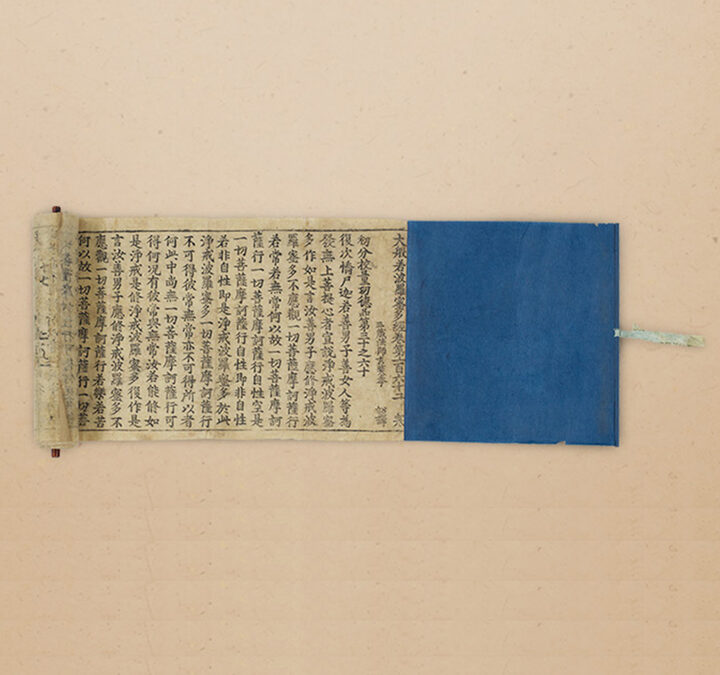 大般若波羅蜜多經卷第一百六十二
三藏法師玄奘奉 詔譯
初分校量功德品第三十之六十
復次憍尸迦若善男子善女人等為
發無上菩提心者宣說淨戒波羅蜜
多作如是言汝善男子應修淨戒波
羅蜜多不應觀一切菩薩摩訶薩行
若常若無常何以故一切菩薩摩訶
薩行一切菩薩摩訶薩行自性空是
一切菩薩摩訶薩行自性即非自性
若非自性即是淨戒波羅蜜多於此
淨戒波羅蜜多一切菩薩摩訶薩行
不可得彼常無常亦不可得所以者
何此中尚無一切菩薩摩訶薩行可
得何況有彼常與無常汝若能修如
是淨戒是修淨戒波羅蜜多復作是
言汝善男子應修淨戒波羅蜜多不
應觀一切菩薩摩訶薩行若樂若苦
何以故一切菩薩摩訶薩行一切菩